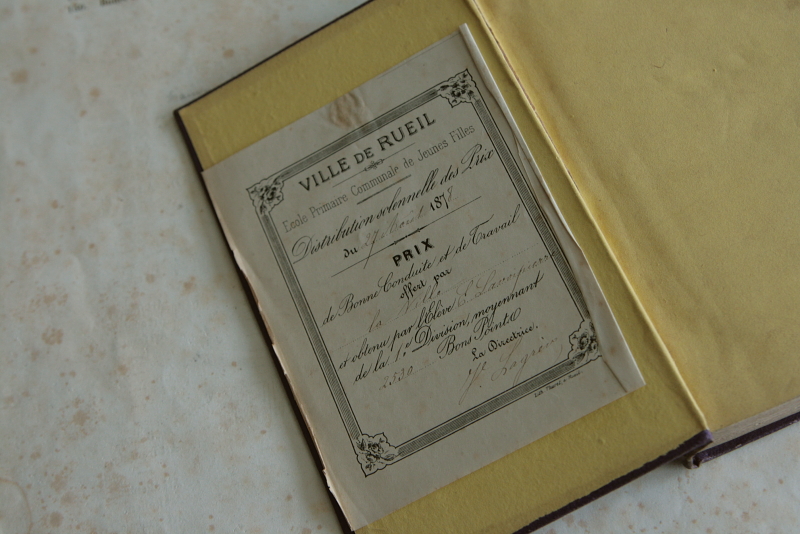 VILLE DE RUEIL
Ecole Primaire Communale de Jeunes Filles
Distribution solennelle des Prix
du 27 Août 1878
PRIX
de Bonne Conduite et de Travail
offert par
la Ville
et obtenu par l'Elève
de la 1e Division, moyennant
2530 Bons Points
La Directrice,